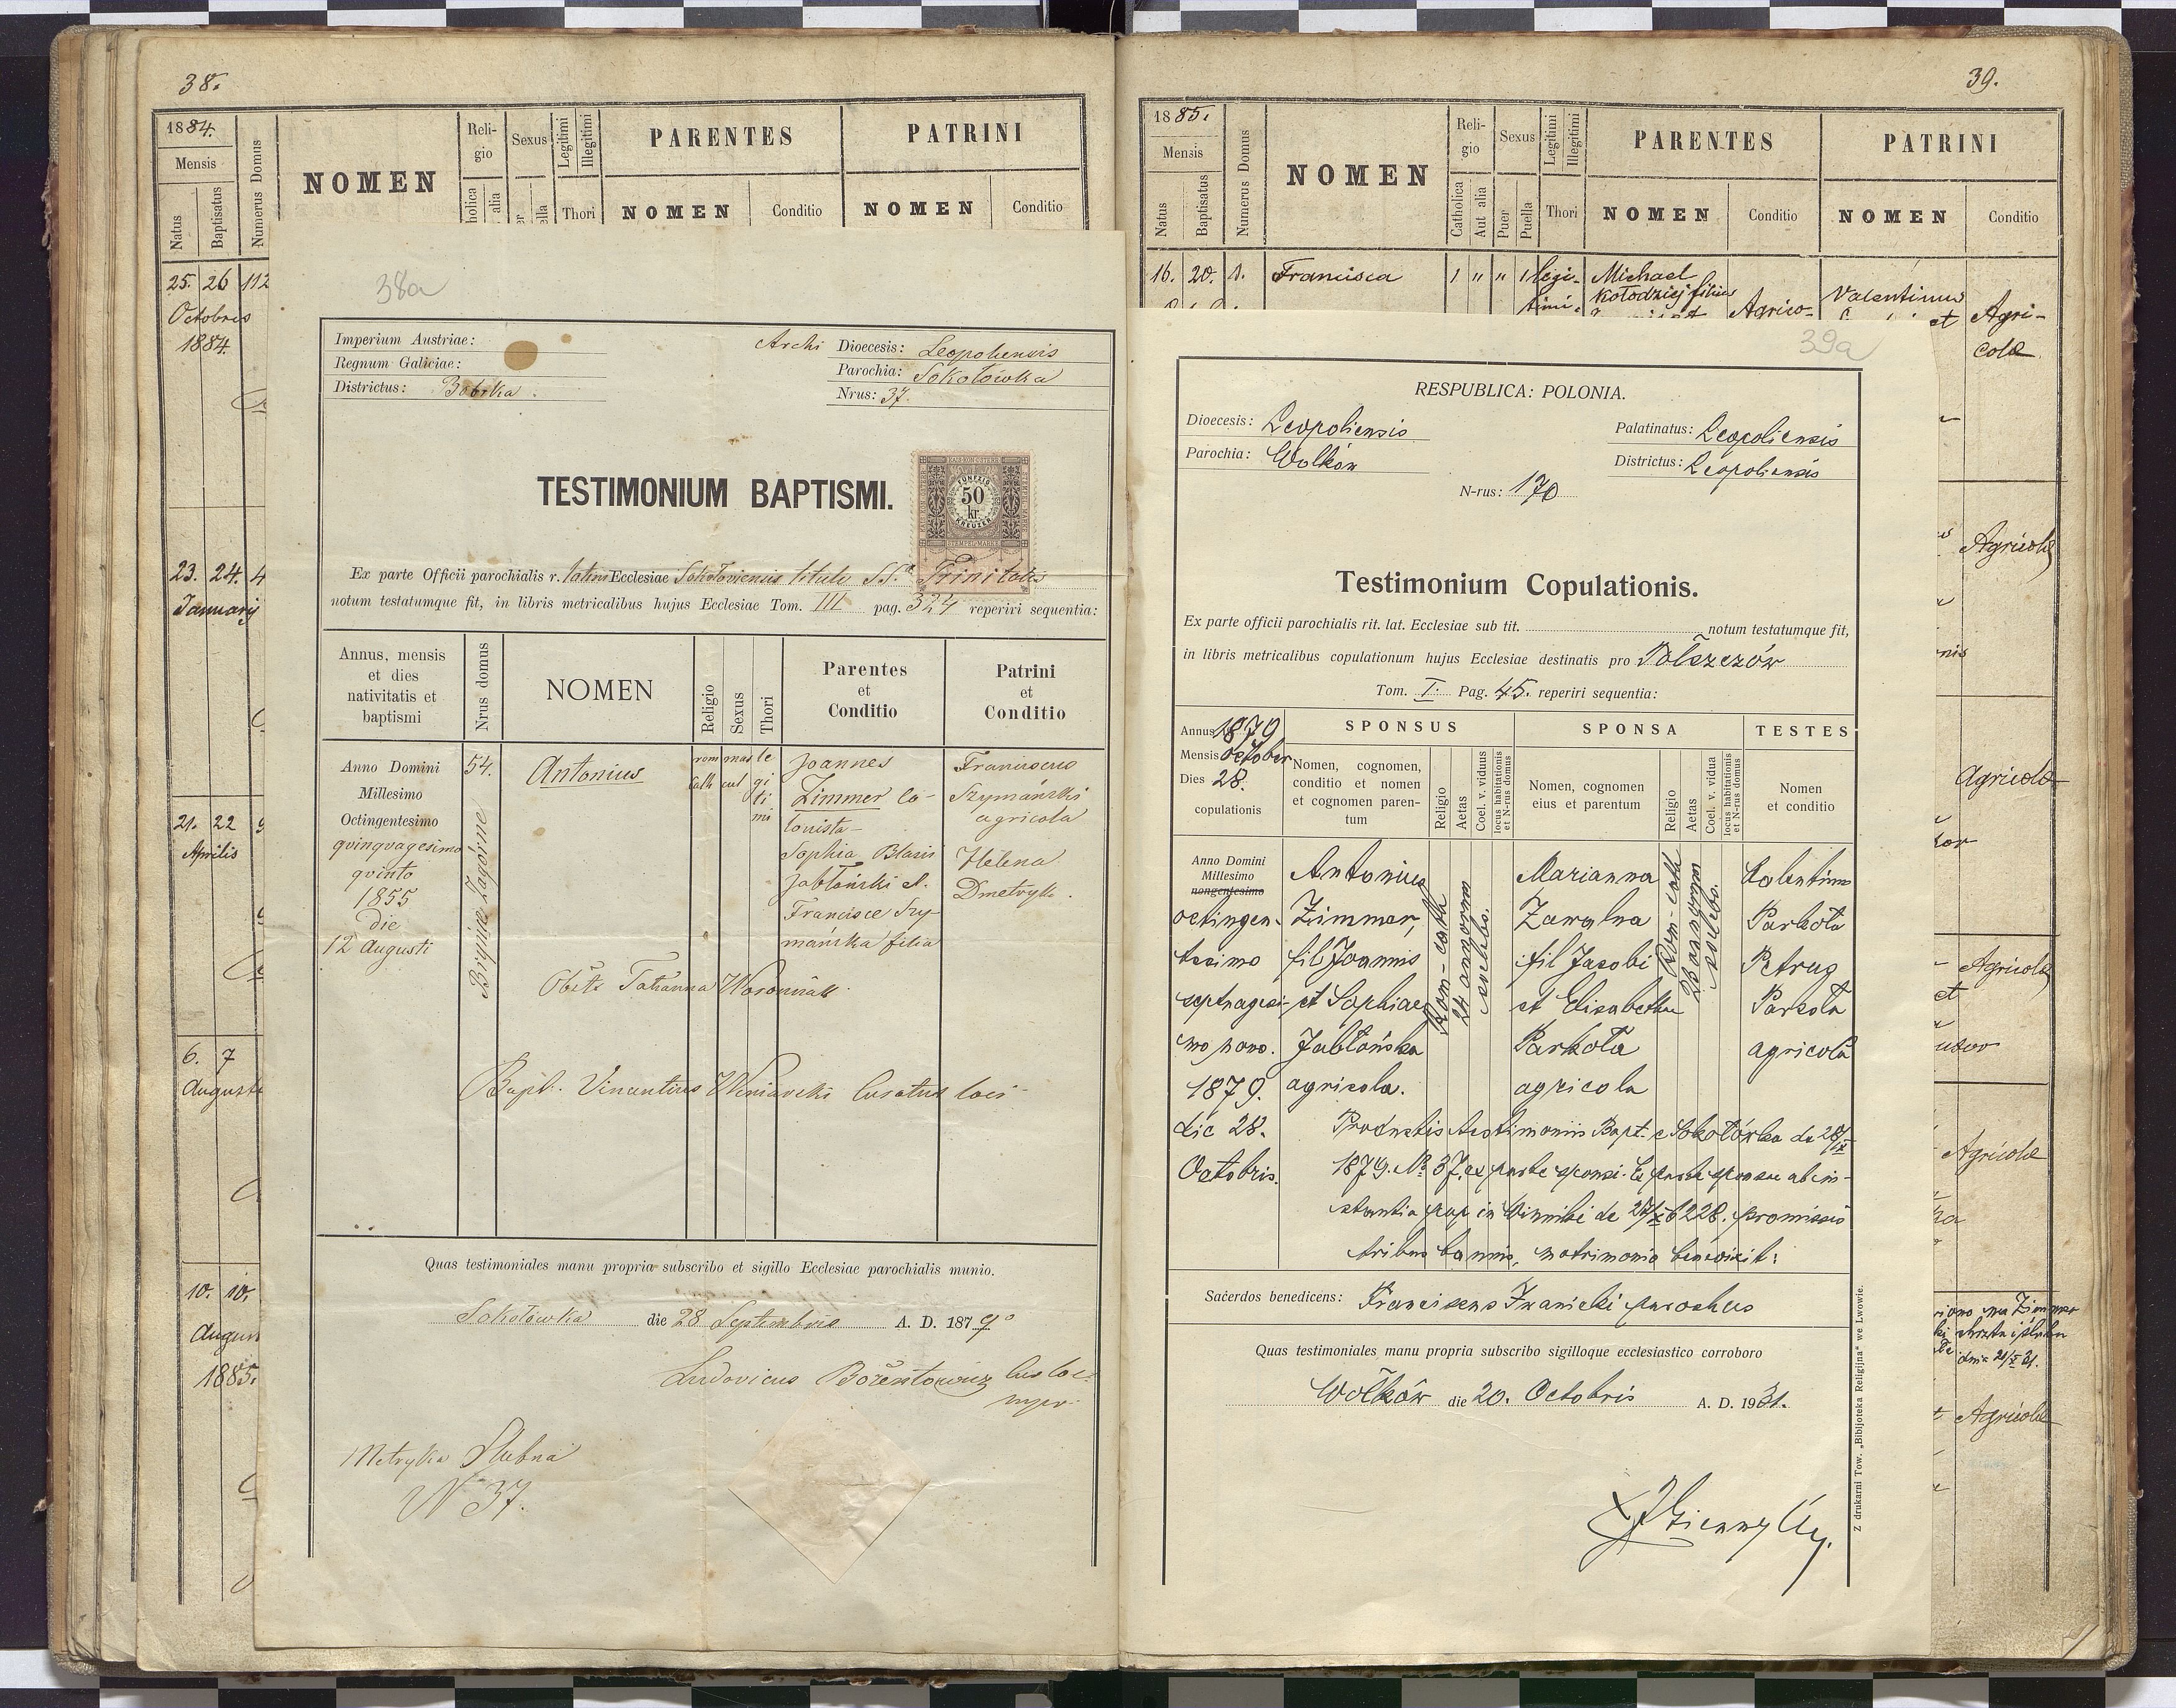 38.
1884.
Mensis
Natus
Baptisatus
Numerus Domus
NOMEN
Reli-
gio
holica
alia
Sexus
er
ella
Legitimi
Illegitimi
Thori
PARENTES
NOMEN
Conditio
PATRINI
NOMEN
Conditio
25. 26 112
Octobris
1884.
23. 24. 4
Januarij
21. 22
Aprilis
6. 7
Augusti
10. 10.
Augus
1885.
38a
Imperium Austriae:
Regnum Galiciae:
Districtus: Bobrka.
Archi Dioecesis: Leopoliensis
Parochia: Sokołówka
Nrus: 37.
TESTIMONIUM BAPTISMI.
FÜNFZIG
50
kr.
KREUZER
STEMPEL-MARKE
Ex parte Officii parochialis r. latini Ecclesiae Sokołoviensis tituli SS. Trinitatis
notum testatumque fit, in libris metricalibus hujus Ecclesiae Tom. III pag. 324 reperiri sequentia:
Annus, mensis
et dies
nativitatis et
baptismi
Nrus domus
NOMEN
Religio
Sexus
Thori
Parentes
et
Conditio
Patrini
et
Conditio
Anno Domini
Millesimo
Octingentesimo
qvinqvagesimo
qvinto
1855
die
12 Augusti
54.
Brynice Zagórne
Antonius
rom
cath
mas
cul
le
gi
ti
mi
Joannes
Zimmer co-
lonista
Sophia Blasii
Jabłoński et
Francisce Szy-
mańska filia
Franciscus
Szymański
agricola
Helena
Dmetryk.
Obst. Tatianna Woroniak
Bapt. Vincentius Wieniavski Curatus loci
Quas testimoniales manu propria subscribo et sigillo Ecclesiae parochialis munio.
Sokołówka die 28 Septembris A. D. 1879°
Ludovicus
Metryka Slubna
N 37.
39.
1885.
Mensis
Natus
Baptisatus
Numerus Domus
NOMEN
Reli-
gio
Catholica
Aut alia
Sexus
Puer
Puella
Legitimi
Illegitimi
Thori
PARENTES
NOMEN
Conditio
PATRINI
NOMEN
Conditio
16. 20. 1. Francisca 1 " " 1 legi-
timi.
Michael
Kołodziej filius
Agrico-
Valentinus
et
Agri-
colæ
Agricolæ
Agricolæ
Agricolæ
Agricolæ
Zimmer
chrztu i ślubu
dnia 21/X 31.
Agricolæ
39a
RESPUBLICA: POLONIA.
Dioecesis: Leopoliensis
Parochia: Wołków
Palatinatus: Leopoliensis
Districtus: Leopoliensis
N-rus: 170
Testimonium Copulationis.
Ex parte officii parochialis rit. lat. Ecclesiae sub tit. notum testatumque fit,
in libris metricalibus copulationum hujus Ecclesiae destinatis pro Tołszczów
Tom. I. Pag. 45. reperiri sequentia:
Annus 1879
Mensis October
Dies 28.
copulationis
SPONSUS
Nomen, cognomen,
conditio et nomen
et cognomen paren-
tum
Religio
Aetas
Coel. v. viduus
locus habitationis
et N-rus domus
SPONSA
Nomen, cognomen
eius et parentum
Religio
Aetas
Coel. v. vidua
locus habitationis
et N-rus domus
TESTES
Nomen
et conditio
Anno Domini
Millesimo
nongentesimo
octingen-
tesimo
septuagesi-
mo nono.
1879.
die 28.
Octobris.
Antonius
Zimmer,
fil Joannis
et Sophiae
Jabłońska
agricola.
Rom-cath
24 annorum
coelebs.
Marianna
Zawalna
fil Jacobi
et Elisabethae
Parkoła
agricola
Rom-cath
28 annorum
coelebs.
Valentinus
Parkoła
Petrus
Parkoła
agricola
Productis testimoniis Bapt. Sokołówka de 28/IX
1879. № 37. ex parte sponsi. Ex parte sponsae ab in-
stantia pup in Winniki de 27/X 6228. promissis
tribus bannis, matrimonio benedixit:
Sacerdos benedicens: Franciscus Iwanicki parochus
Quas testimoniales manu propria subscribo sigilloque ecclesiastico corroboro
Wołków die 20. Octobris A. D. 1931.
Z drukarni Tow. „Bibljoteka Religijna" we Lwowie.